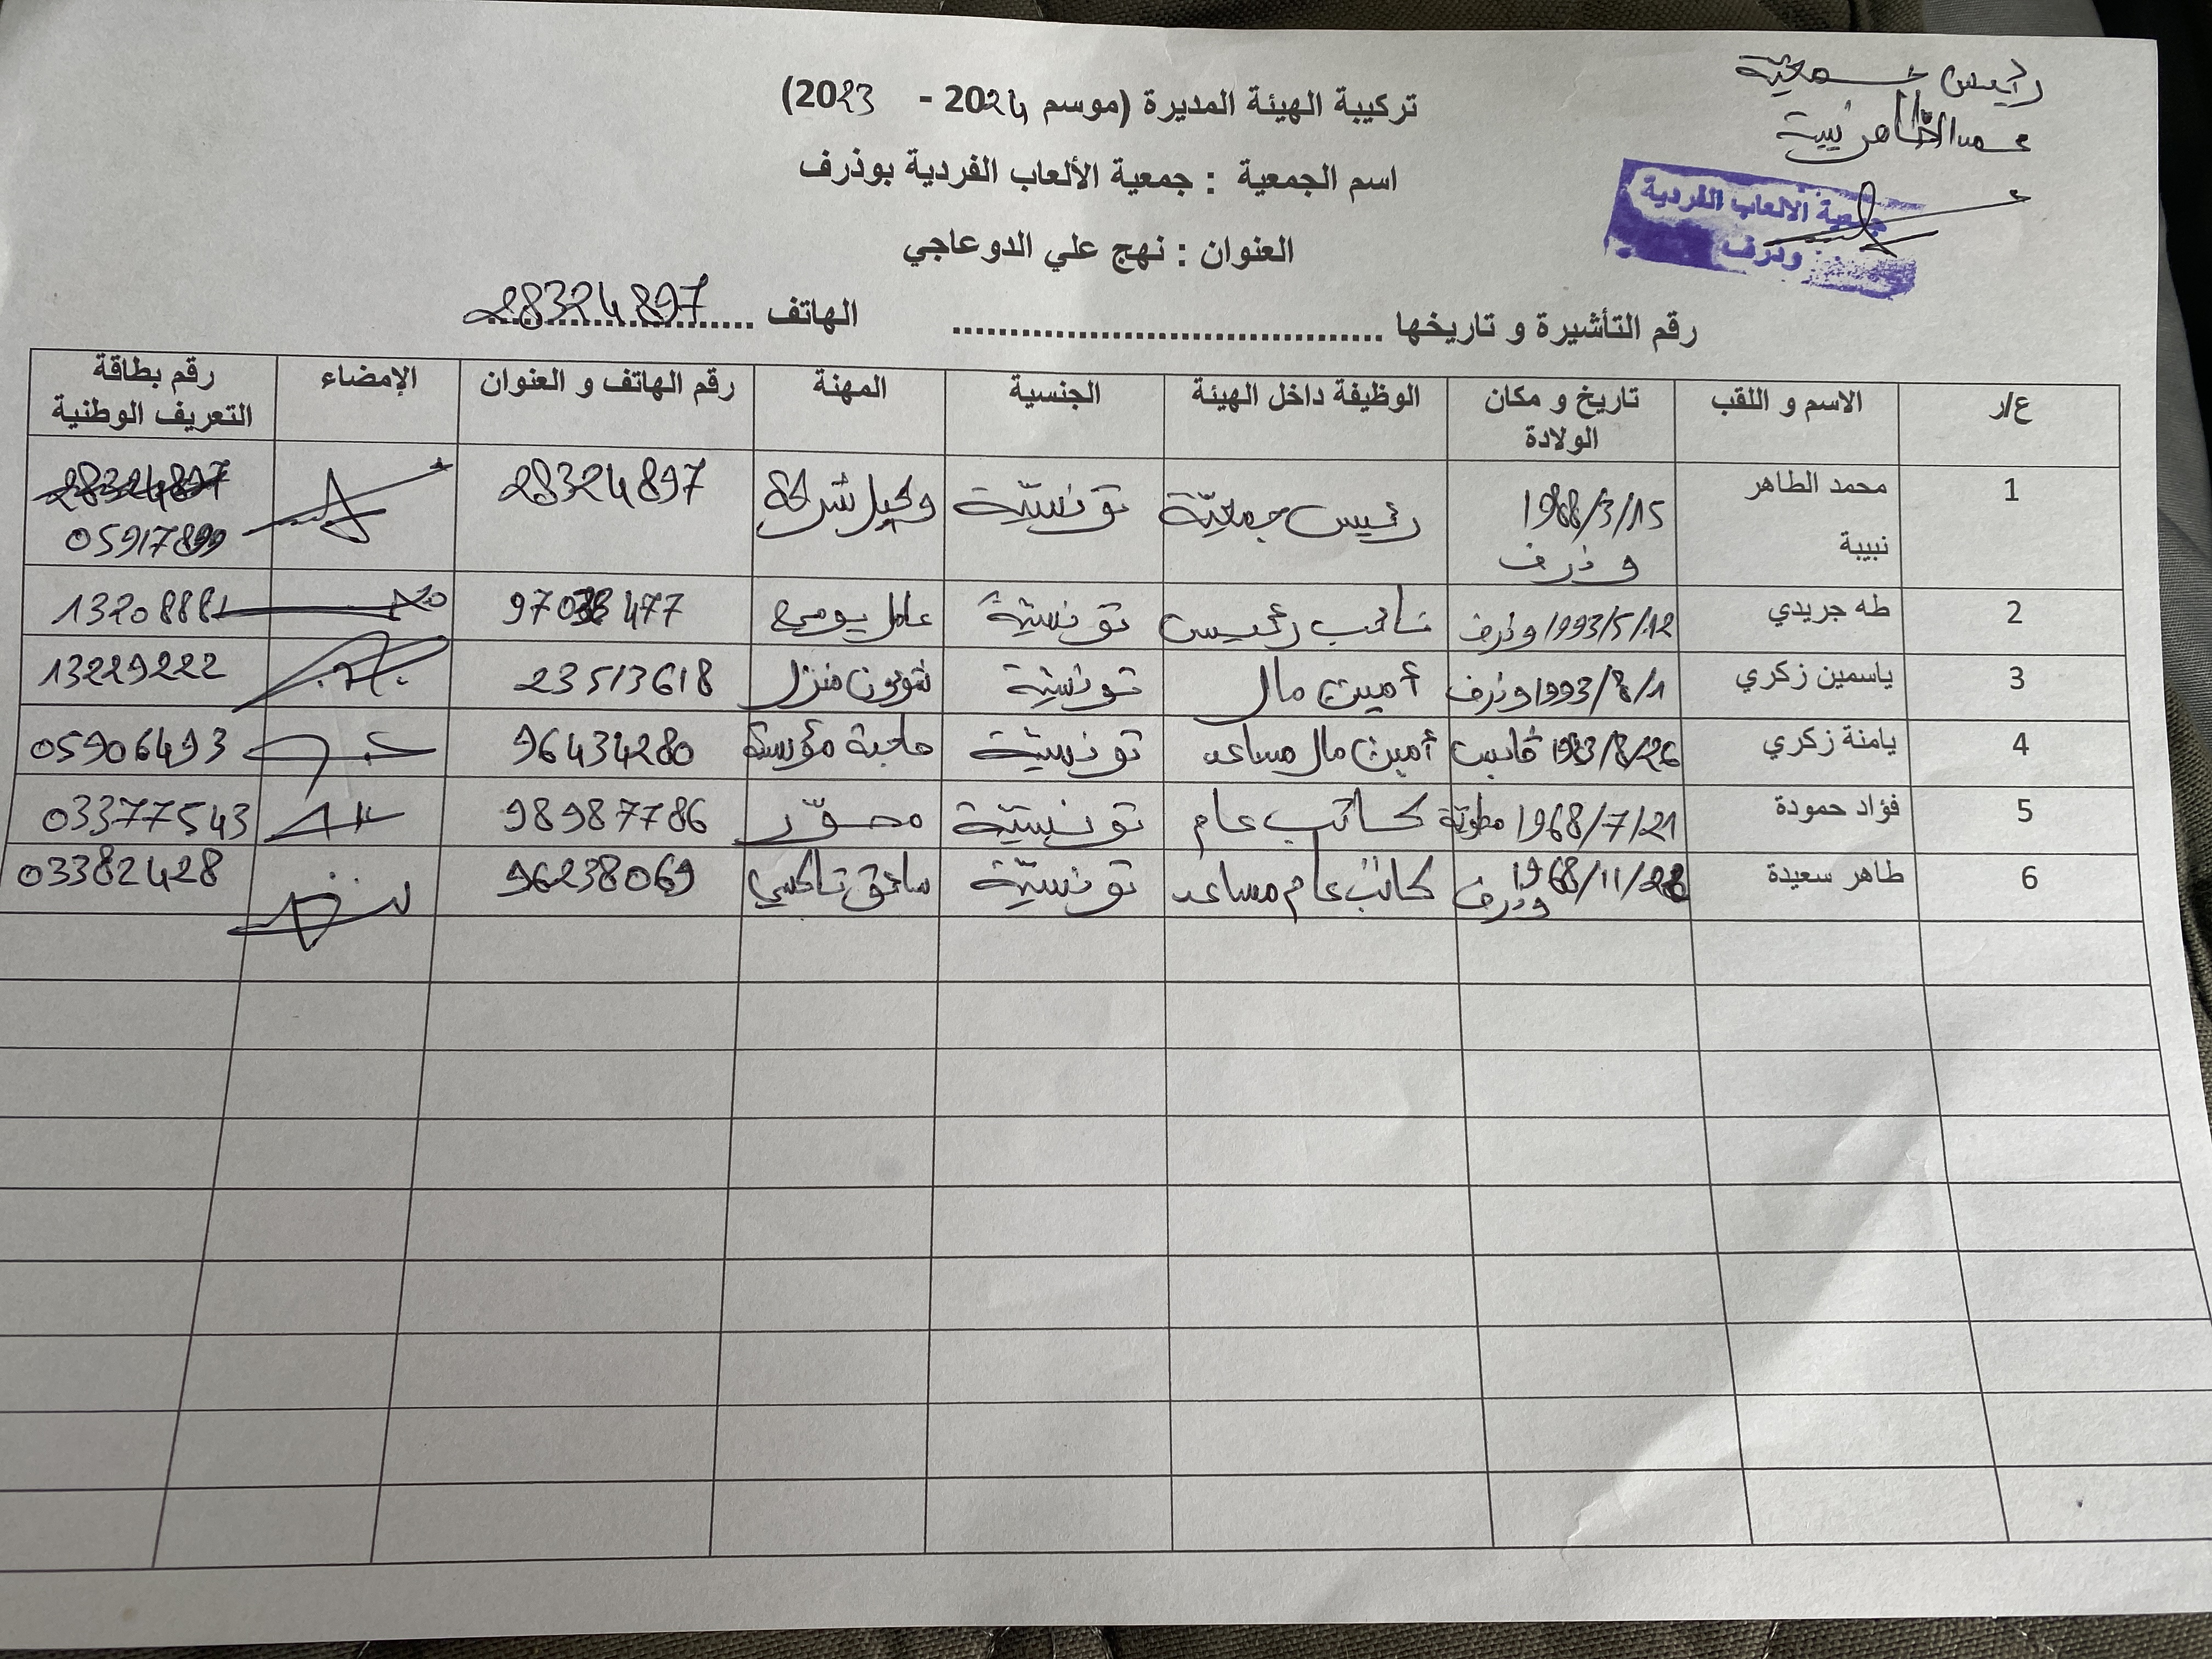 رئيس جمعية
محمد الطاهر نبيبة
جمعية الالعاب الفردية
وذرف
تركيبة الهيئة المديرة (موسم 2024 - 2023)
اسم الجمعية : جمعية الألعاب الفردية بوذرف
العنوان : نهج علي الدوعاجي
رقم التأشيرة و تاريخها ...................................... الهاتف 28324897
ع/ر الاسم و اللقب تاريخ و مكان الولادة الوظيفة داخل الهيئة الجنسية المهنة رقم الهاتف و العنوان الإمضاء رقم بطاقة التعريف الوطنية
1 محمد الطاهر نبيبة 1988/3/15 وذرف رئيس جمعيّة تونسيّة وكيل شركة 28324897 28324897 05917899
2 طه جريدي 1993/5/12 وذرف نائب رئيس تونسيّة عامل يومي 13208881
3 ياسمين زكري 1993/8/1 وذرف أمين مال تونسيّة شؤون منزل 23513618 13229222
4 يامنة زكري 1983/8/26 قابس أمين مال مساعد تونسيّة صاحبة مؤسسة 96434280 05906493
5 فؤاد حمودة 1968/7/21 مطويّة كاتب عام تونسيّة مصوّر 98987786 03377543
6 طاهر سعيدة 1968/11/28 وذرف كاتب عام مساعد تونسيّة سائق تاكسي 96238069 03382428